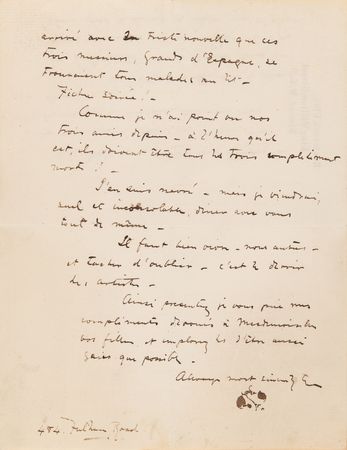 arrivé avec la triste nouvelle que ces
trois messieurs, Grands d'Espagne, se
trouvaient tous malades au lit -
Fichue soirée! -
Comme je n'ai point vu nos
trois amis depuis - à l'heure qu'il
est, ils doivent être tous les trois complètement
morts! -
J'en suis navré - mais je viendrai,
seul et inconsolable, diner avec vous
tout de même -
Il faut bien vivre - nous autres -
et tacher d'oublier - c'est le devoir
des artistes -
Ainsi presentez je vous prie mes
compliments à
vos filles et d'être aussi
gaies que possible -
Always most sincerely
454. Fulham Road